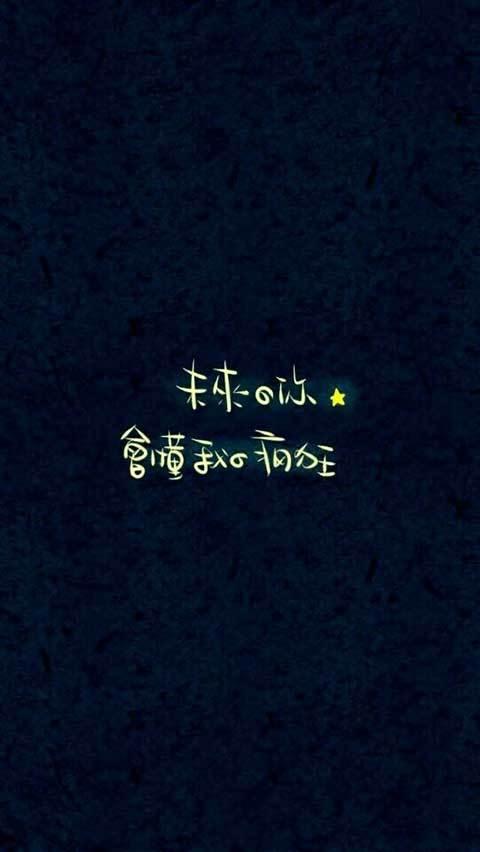 未來の你
會懂我の瘋狂